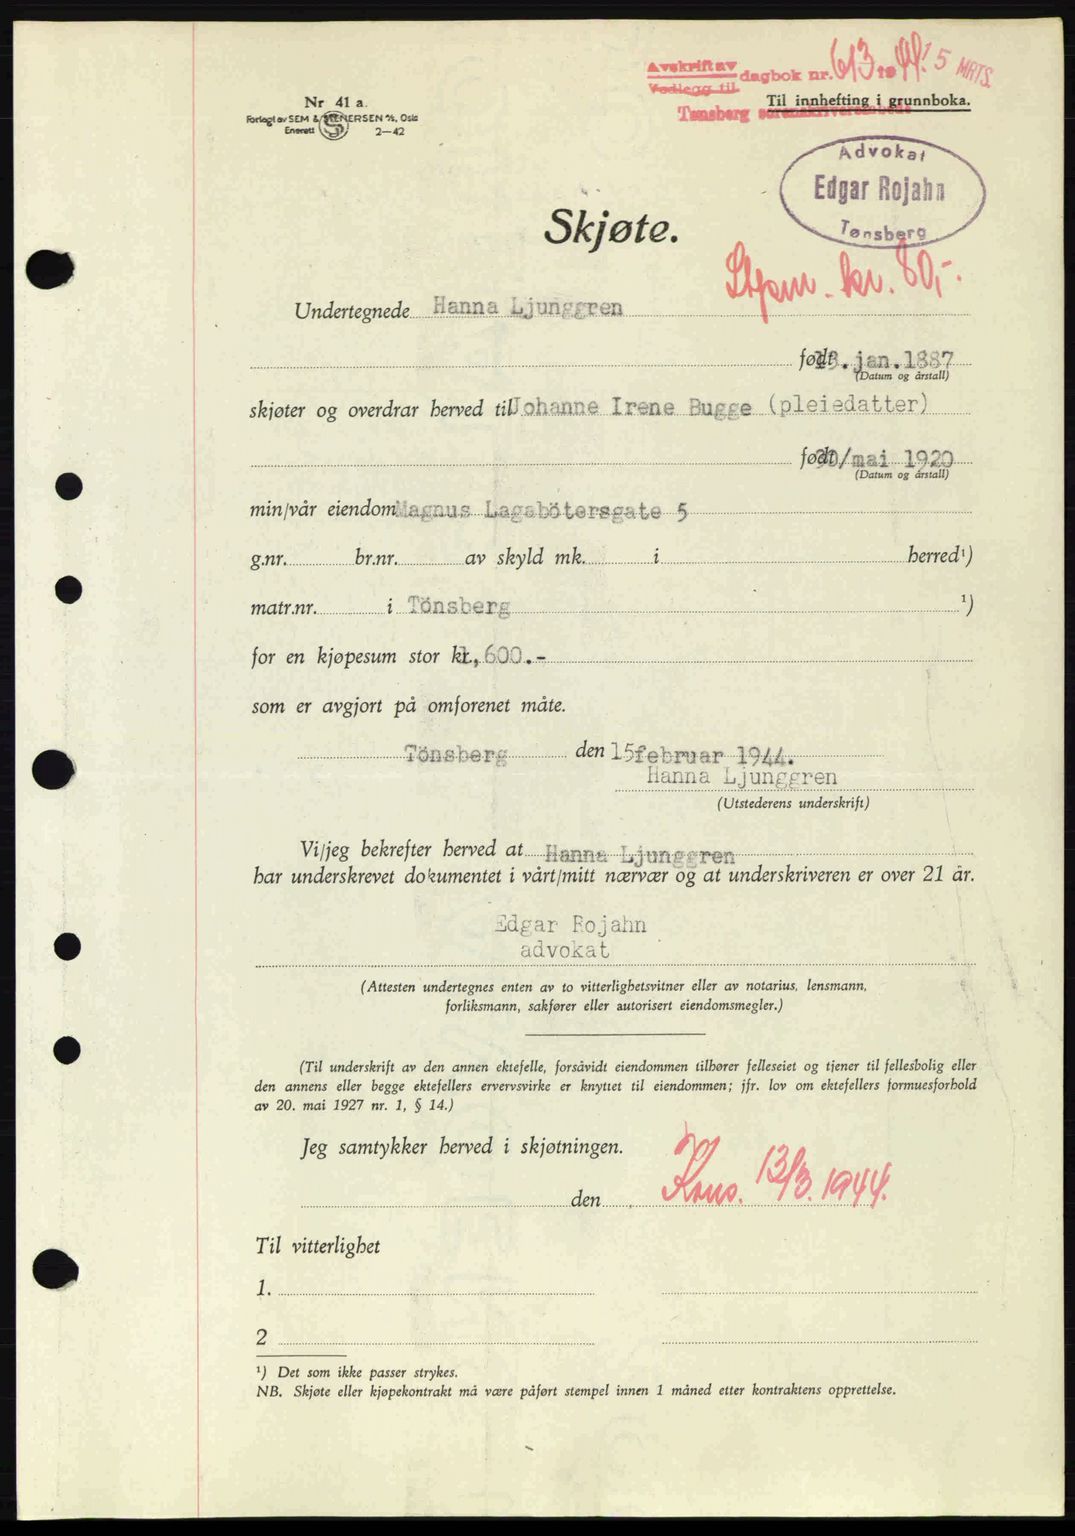 Avskrift av
Vedlegg til dagbok nr. 613 19 44. 15 MRTS.
Tønsberg sorenskriverembede
Til innhefting i grunnboka.
Nr 41 a.
Forlagt av SEM & STENERSEN A/S, Oslo
Enerett 2—42
Advokat
Edgar Rojahn
Tønsberg
Skjøte.
Stpm. kr. 80,-.
Undertegnede Hanna Ljunggren
født 13. jan. 1887
(Datum og årstall)
skjøter og overdrar herved til Johanne Irene Bugge (pleiedatter)
født 30/mai 1920
(Datum og årstall)
min/vår eiendom Magnus Lagabötersgate 5
g.nr. br.nr. av skyld mk. i herred¹)
matr.nr. i Tönsberg ¹)
for en kjøpesum stor kr. ,600.-
som er avgjort på omforenet måte.
Tönsberg den 15 februar 1944.
Hanna Ljunggren
(Utstederens underskrift)
Vi/jeg bekrefter herved at Hanna Ljunggren
har underskrevet dokumentet i vårt/mitt nærvær og at underskriveren er over 21 år.
Edgar Rojahn
advokat
(Attesten undertegnes enten av to vitterlighetsvitner eller av notarius, lensmann,
forliksmann, sakfører eller autorisert eiendomsmegler.)
(Til underskrift av den annen ektefelle, forsåvidt eiendommen tilhører felleseiet og tjener til fellesbolig eller
den annens eller begge ektefellers ervervsvirke er knyttet til eiendommen; jfr. lov om ektefellers formuesforhold
av 20. mai 1927 nr. 1, § 14.)
Jeg samtykker herved i skjøtningen.
den
Kons. 13/3. 1944.
Til vitterlighet
1.
2
¹) Det som ikke passer strykes.
NB. Skjøte eller kjøpekontrakt må være påført stempel innen 1 måned etter kontraktens opprettelse.